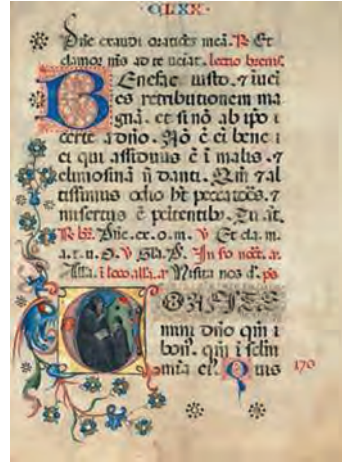 ·CLXX·
Dñe exaudi oratiões meã. R Et
clamor mis ad te ueiat. lectio breuis.
BEnefac iusto. ⁊ iuei
es retributionem ma
gnã. et si nõ ab ipo i
certe a dño. Nõ ẽ ei bene i
ei qui assiduus ẽ ĩ malis. ⁊
elimosinã ñ danti. Qm̃ ⁊ al
tissimus odio ht peccatões. ⁊
misertus ẽ peitentibȝ. Tu aut.
R bȝ. Dñe. ex. o. m. V Et cla. m.
a. t. u. O. V Gla. P. In so noct. a.
Alla. i loco alla. a Nisita nos d. ps
CONFITE
mini dño qm i
bon. qm i seclm
mia ei. Quis
170